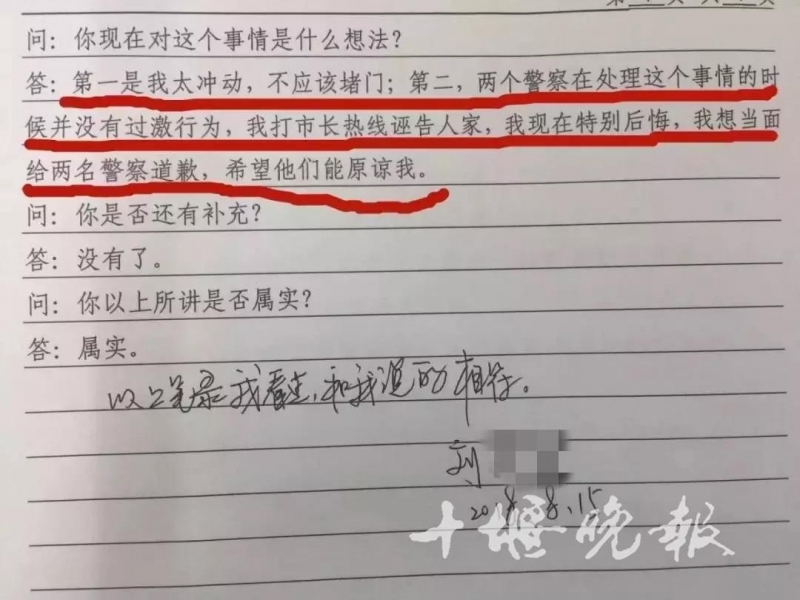 问：你现在对这个事情是什么想法？
答：第一是我太冲动，不应该堵门；第二，两个警察在处理这个事情的时
候并没有过激行为，我打市长热线诬告人家，我现在特别后悔，我想当面
给两名警察道歉，希望他们能原谅我。
问：你是否还有补充？
答：没有了。
问：你以上所讲是否属实？
答：属实。
以上笔录我看过，和我说的相符。
刘
2018.8.15
十堰晚报